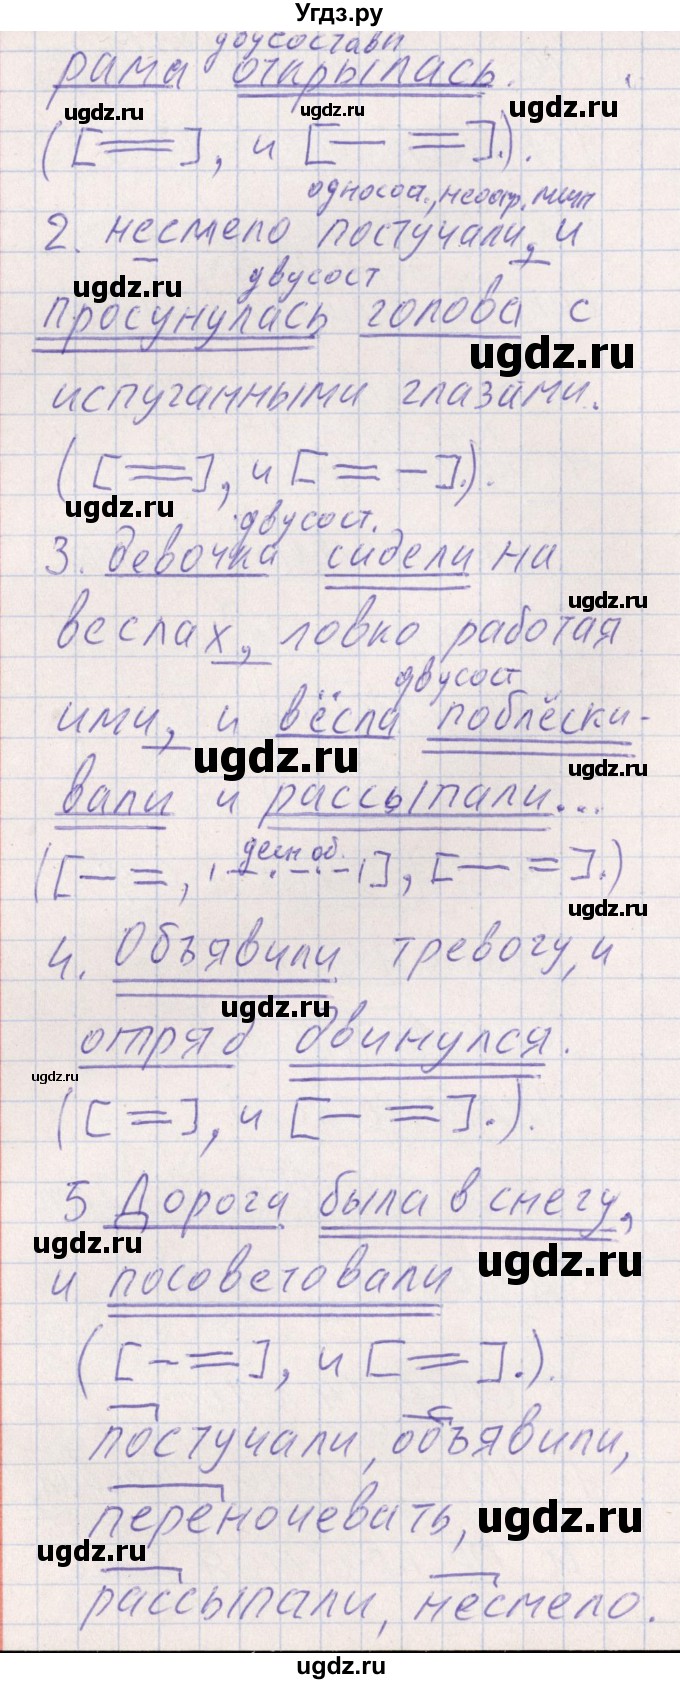 Угдз.ру
двусоставн
рама открылась.
ugdz.ru ugdz.ru ugdz.ru
([══], и [— ═].).
односост., неопр. личн
2. несмело постучали, и
ugdz.ru
двусост
просунулась голова с
ugdz.ru
испуганными глазами.
([══], и [═ —].).
ugdz.ru
двусост.
3. девочка сидели на
ugdz.ru
веслах, ловко работая
двусост
ими, и вёсла поблёски-
ugdz.ru ugdz.ru
вали и рассыпали...
([— ═, |-·-·-|], [— ═].)
ugdz.ru
4. Объявили тревогу, и
ugdz.ru
отряд двинулся.
ugdz.ru
([═], и [— ═].).
5 Дорога была в снегу,
ugdz.ru ugdz.ru
и посоветовали
([— ═], и [═].).
постучали, объявили,
переночевать,
ugdz.ru ugdz.ru
рассыпали, несмело.
ugdz.ru